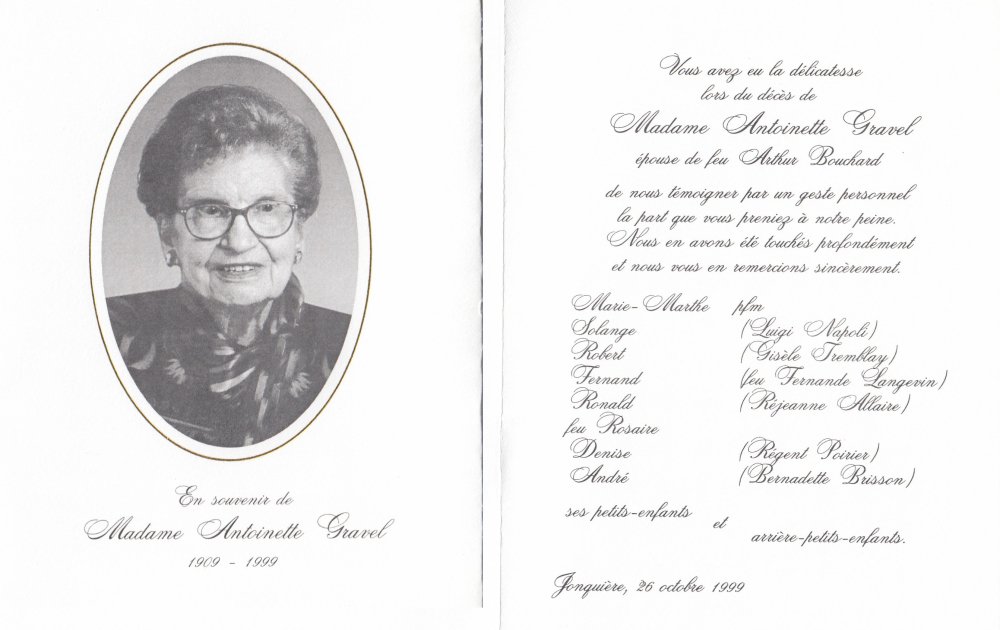 En souvenir de
Madame Antoinette Gravel
1909 - 1999
Vous avez eu la délicatesse
lors du décès de
Madame Antoinette Gravel
épouse de feu Arthur Bouchard
de nous témoigner par un geste personnel
la part que vous preniez à notre peine.
Nous en avons été touchés profondément
et nous vous en remercions sincèrement.
Marie-Marthe pfm
Solange (Luigi Napoli)
Robert (Gisèle Tremblay)
Fernand (feu Fernande Langevin)
Ronald (Réjeanne Allaire)
feu Rosaire
Denise (Régent Poirier)
André (Bernadette Brisson)
ses petits-enfants
et
arrière-petits-enfants.
Jonquière, 26 octobre 1999